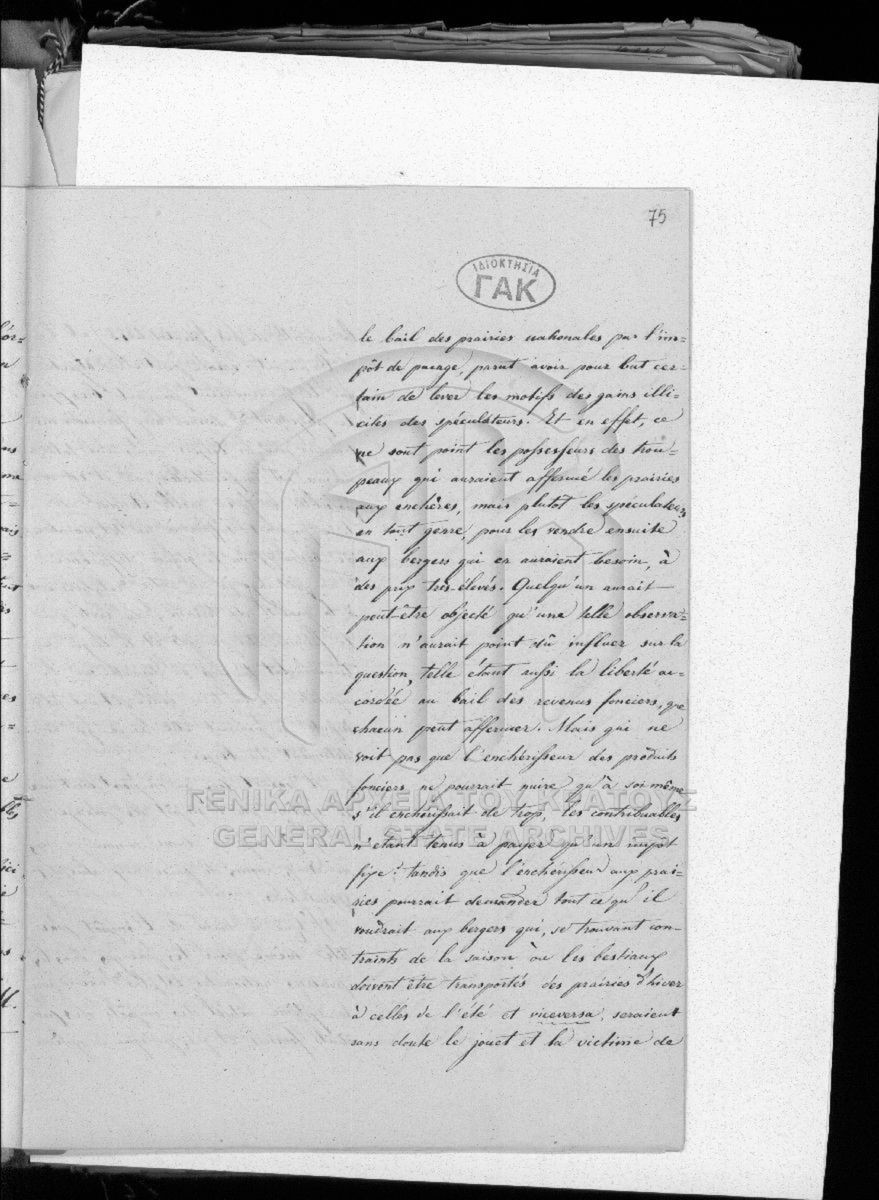 75
ΙΔΙΟΚΤΗΣΙΑ
ΓΑΚ
le bail des prairies nationales par l'im-
pôt de pacage, parut avoir pour but cer-
tain de lever les motifs des gains illi-
cites des spéculateurs. Et en effet, ce
ne sont point les possesseurs des trou-
peaux qui auraient affermé les prairies
aux enchères, mais plutôt les spéculateurs
en tout genre, pour les vendre ensuite
aux bergers qui en auraient besoin, à
des prix très-élevés. Quelqu'un aurait
peut-être objecté qu'une telle observa-
tion n'aurait point dû influer sur la
question, telle étant aussi la liberté ac-
cordée au bail des revenus fonciers, que
chacun peut affermer. Mais qui ne
voit pas que l'enchérisseur des produits
fonciers ne pourrait nuire qu'à soi même
s'il enchérissait de trop, les contribuables
n'étant tenus à payer qu'un impôt
fixe; tandis que l'enchérisseur aux prai-
ries pourrait demander tout ce qu'il
voudrait aux bergers qui, se trouvant con-
traints de la saison où les bestiaux
doivent être transportés des prairies d'hiver
à celles de l'été et viceversa, seraient
sans doute le jouet et la victime de
ΓΕΝΙΚΑ ΑΡΧΕΙΑ ΤΟΥ ΚΡΑΤΟΥΣ
GENERAL STATE ARCHIVES